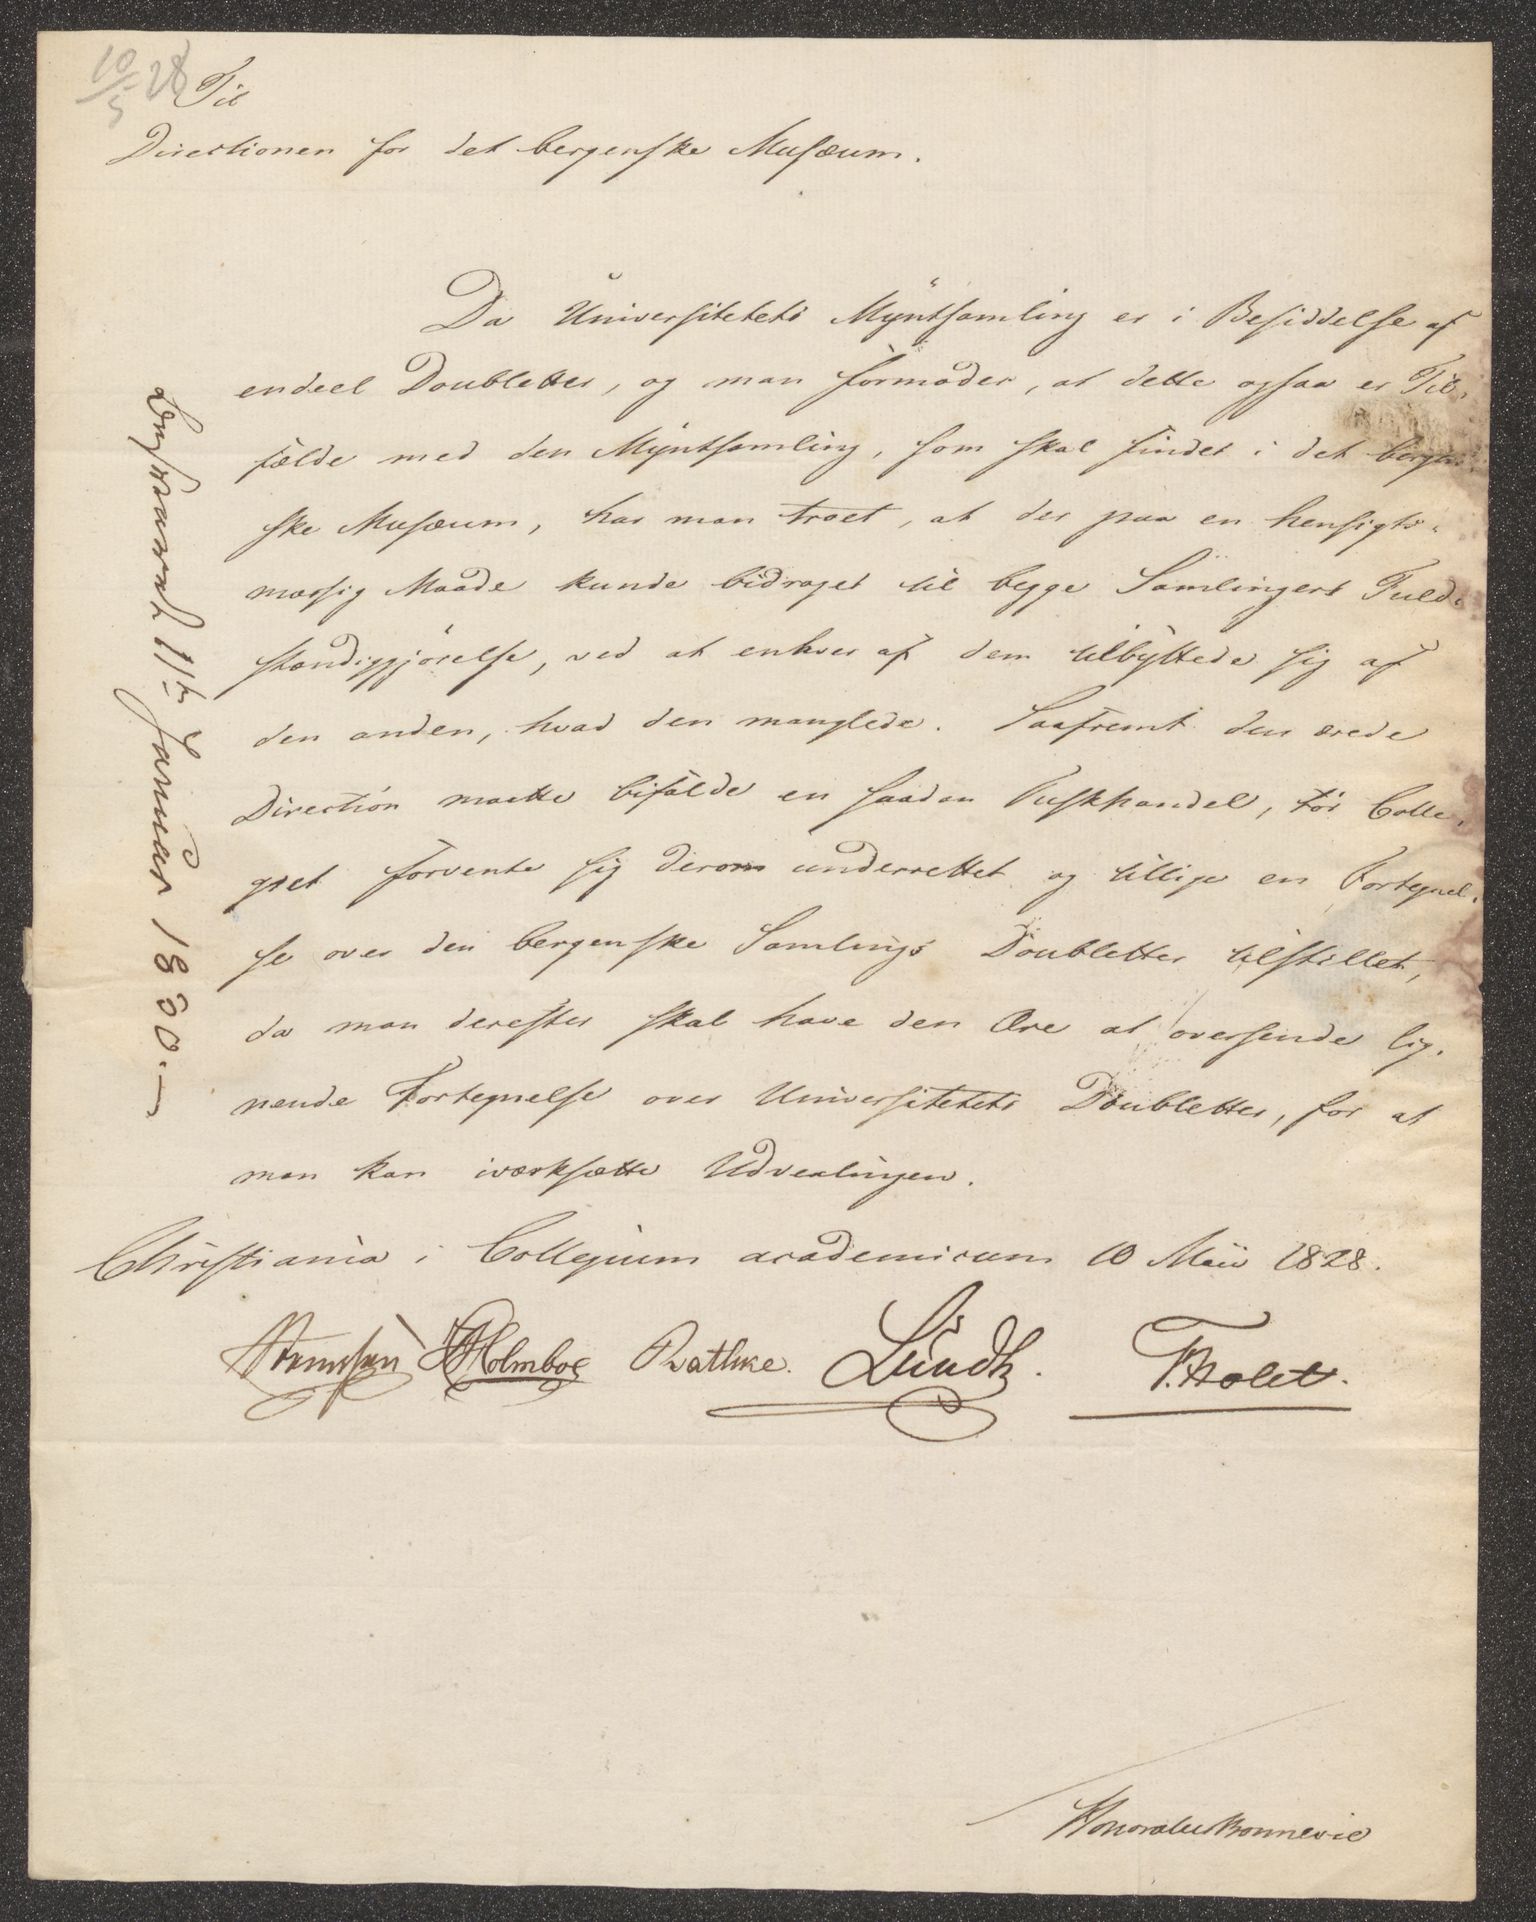 10/5 28
Til
Directionen for det bergenske Musæum.
Da Universitetets Myntsamling er i Besiddelse af
endeel Doubletter, og man formoder, at dette ogsaa er Til-
fælde med den Myntsamling, som skal findes i det bergen-
ske Musæum, har man troet, at der paa en hensigts-
mæssig Maade kunde bidrages til begge Samlingers Fuld-
stændiggjørelse, ved at enhver af dem tilbyttede sig af
den anden, hvad den manglede. Saafremt den ærede
Direction maatte bifalde en saadan Tuskhandel, tør Colle-
giet forvente sig derom underrettet og tillige en Fortegnel-
se over den bergenske Samlings Doubletter tilstillet,
da man derefter skal have den Ære at oversende lig-
nende Fortegnelse over Universitetets Doubletter, for at
man kan iværksætte Udvexlingen.
Christiania i Collegium academicum 10 Maii 1828.
Steenbloch Holmboe Rathke. Lundh. F. Holst.
Honoratus Bonnevie
Besvaret 11te Januar 1830.—